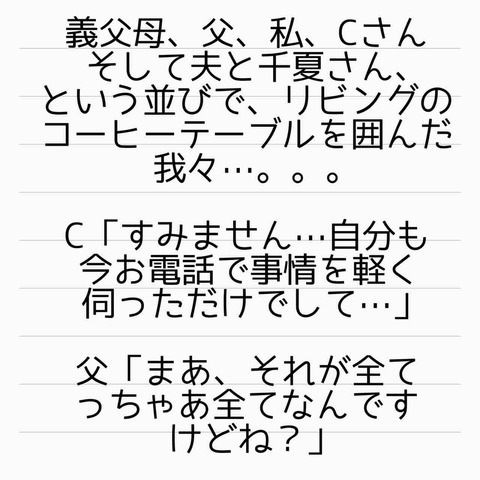 義父母、父、私、Cさん
そして夫と千夏さん、
という並びで、リビングの
コーヒーテーブルを囲んだ
我々…。。。
C「すみません…自分も
今お電話で事情を軽く
伺っただけでして…」
父「まあ、それが全て
っちゃあ全てなんです
けどね？」